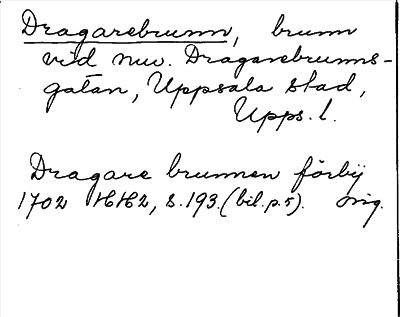 Dragarebrunn, brunn
vid nuv. Dragarebrunns-
gatan, Uppsala stad,
Upps. l.
Dragare brunnen förbij
1702 HH2, s.193. (bil.p.5). Orig.